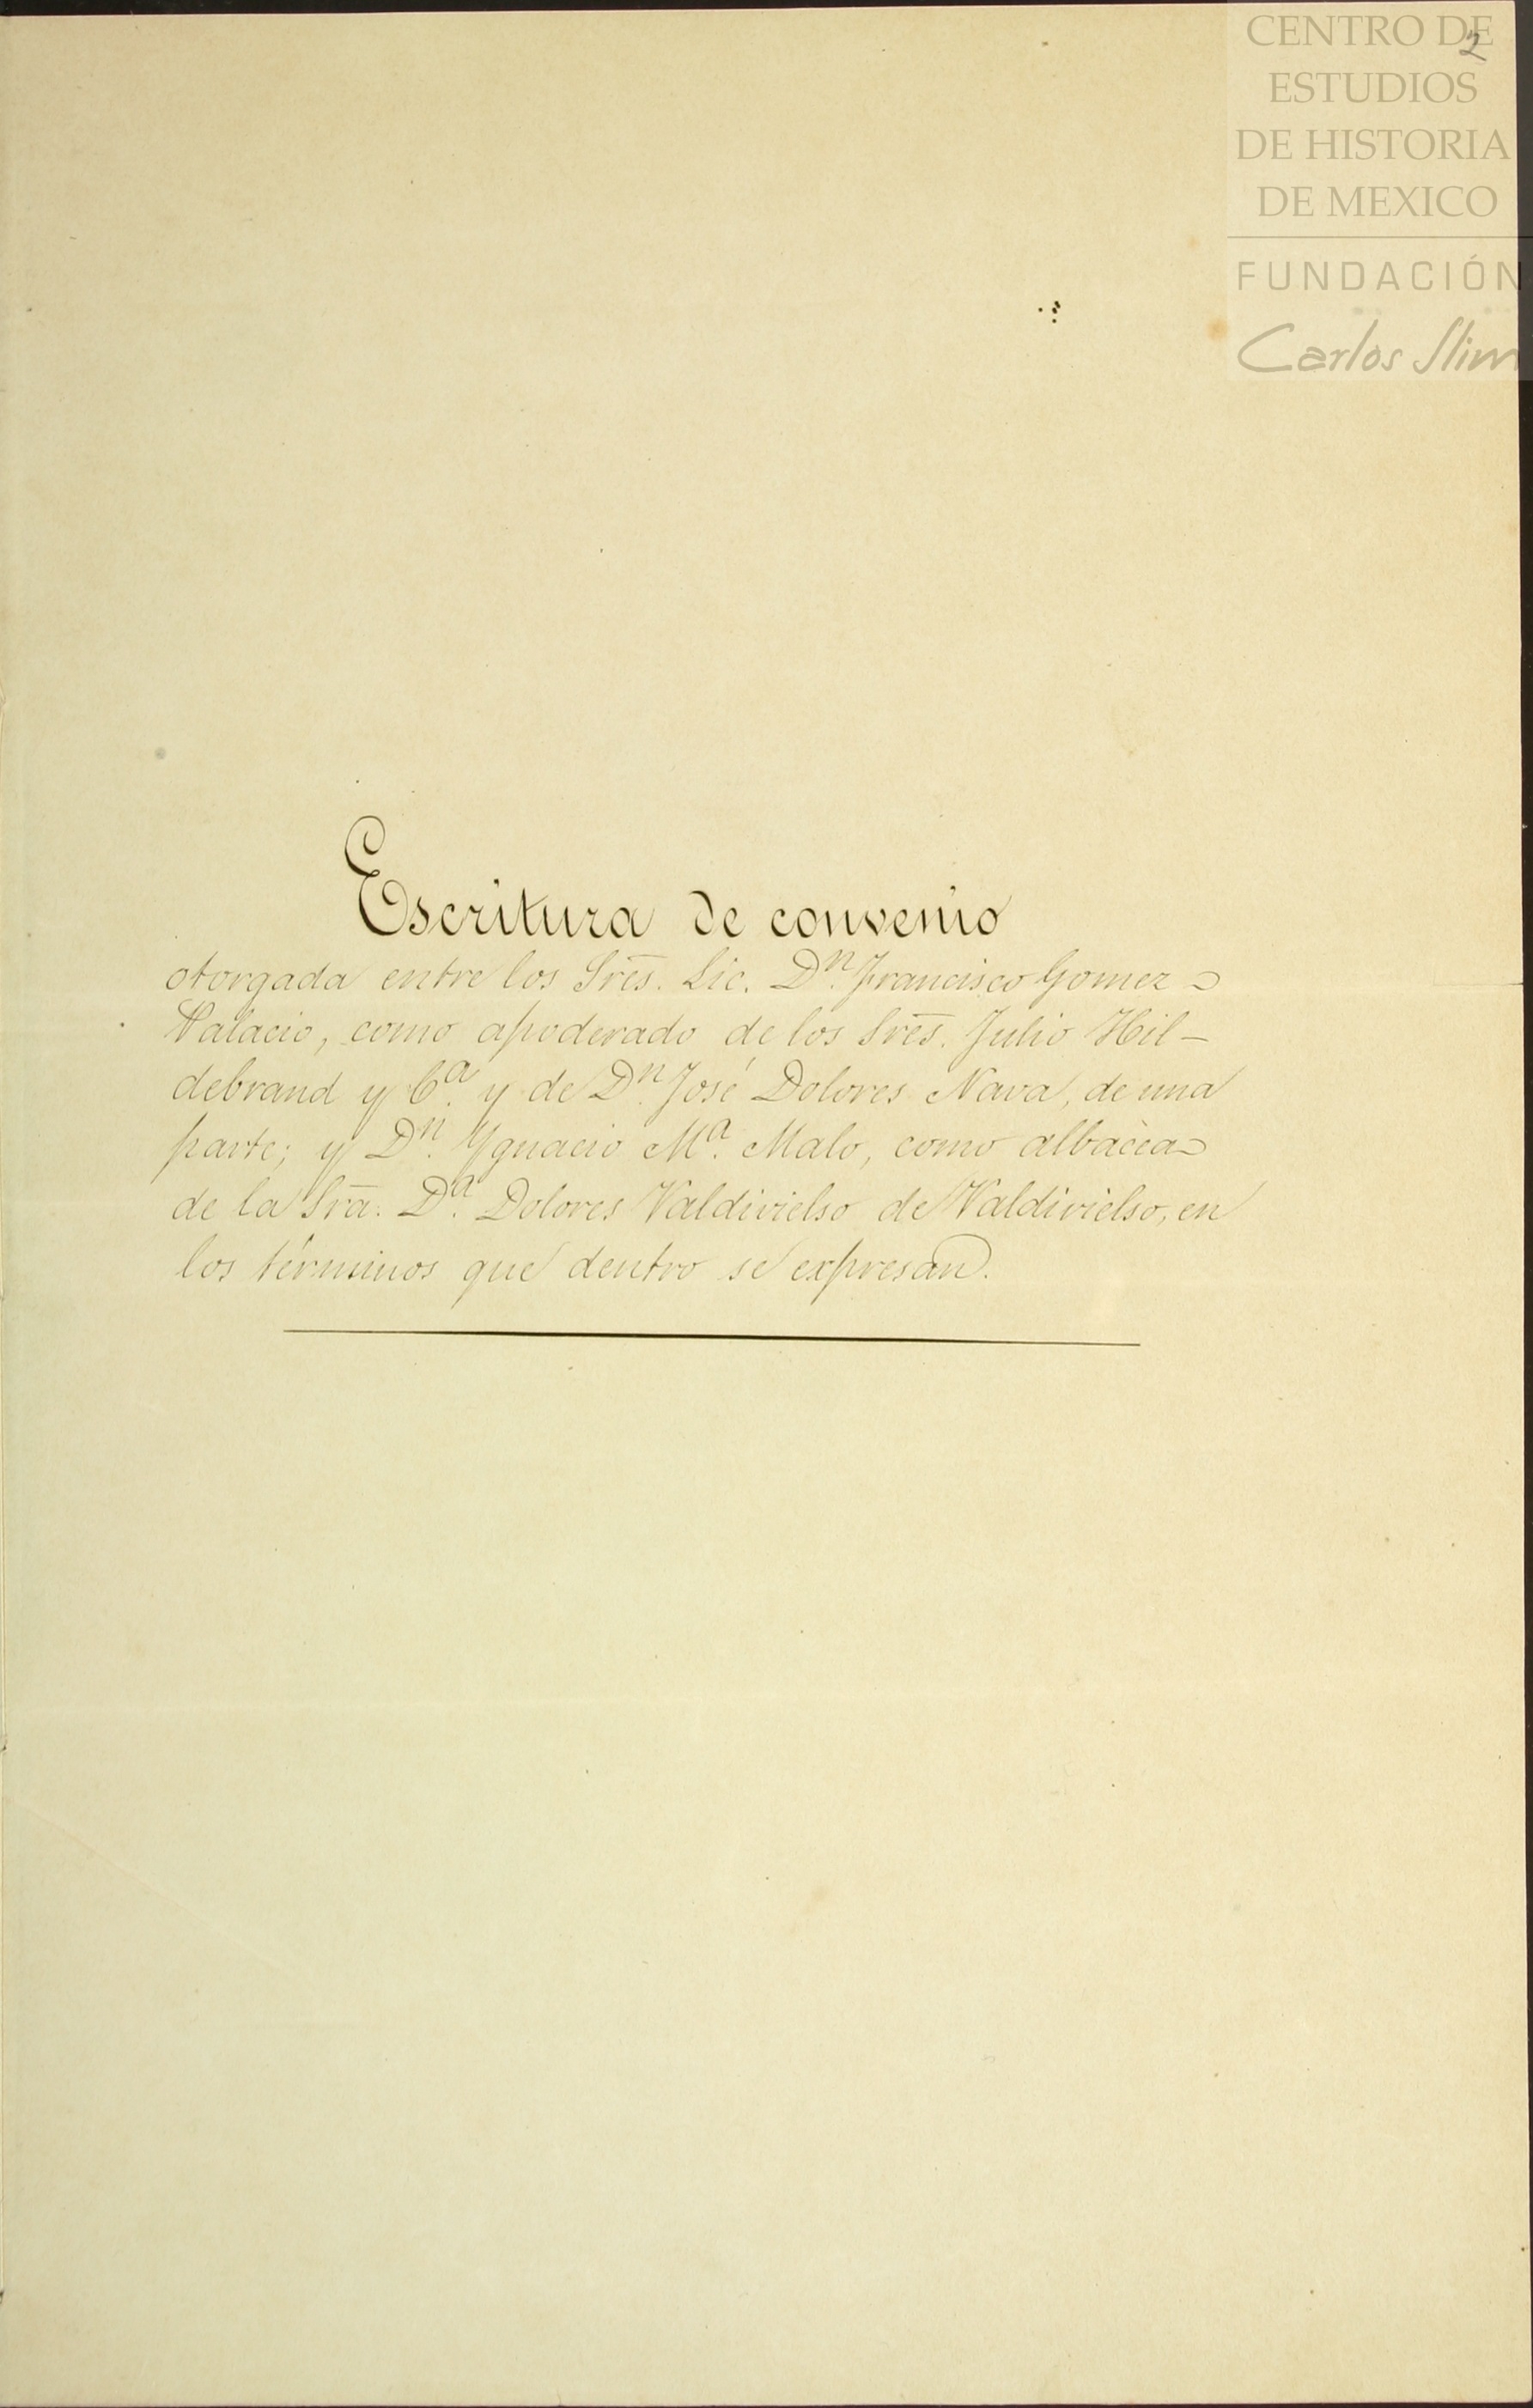 CENTRO DE
ESTUDIOS
DE HISTORIA
DE MEXICO
FUNDACIÓN
Carlos Slim
2
Escritura de convenio
otorgada entre los Sres. Lic. Dn. Francisco Gomez
Palacio, como apoderado de los Sres. Julio Hil-
debrand y Ca. y de Dn. José Dolores Nava, de una
parte; y Dn. Ygnacio Ma. Malo, como albacea
de la Sra. Da. Dolores Valdivielso de Valdivielso, en
los términos que dentro se expresan.